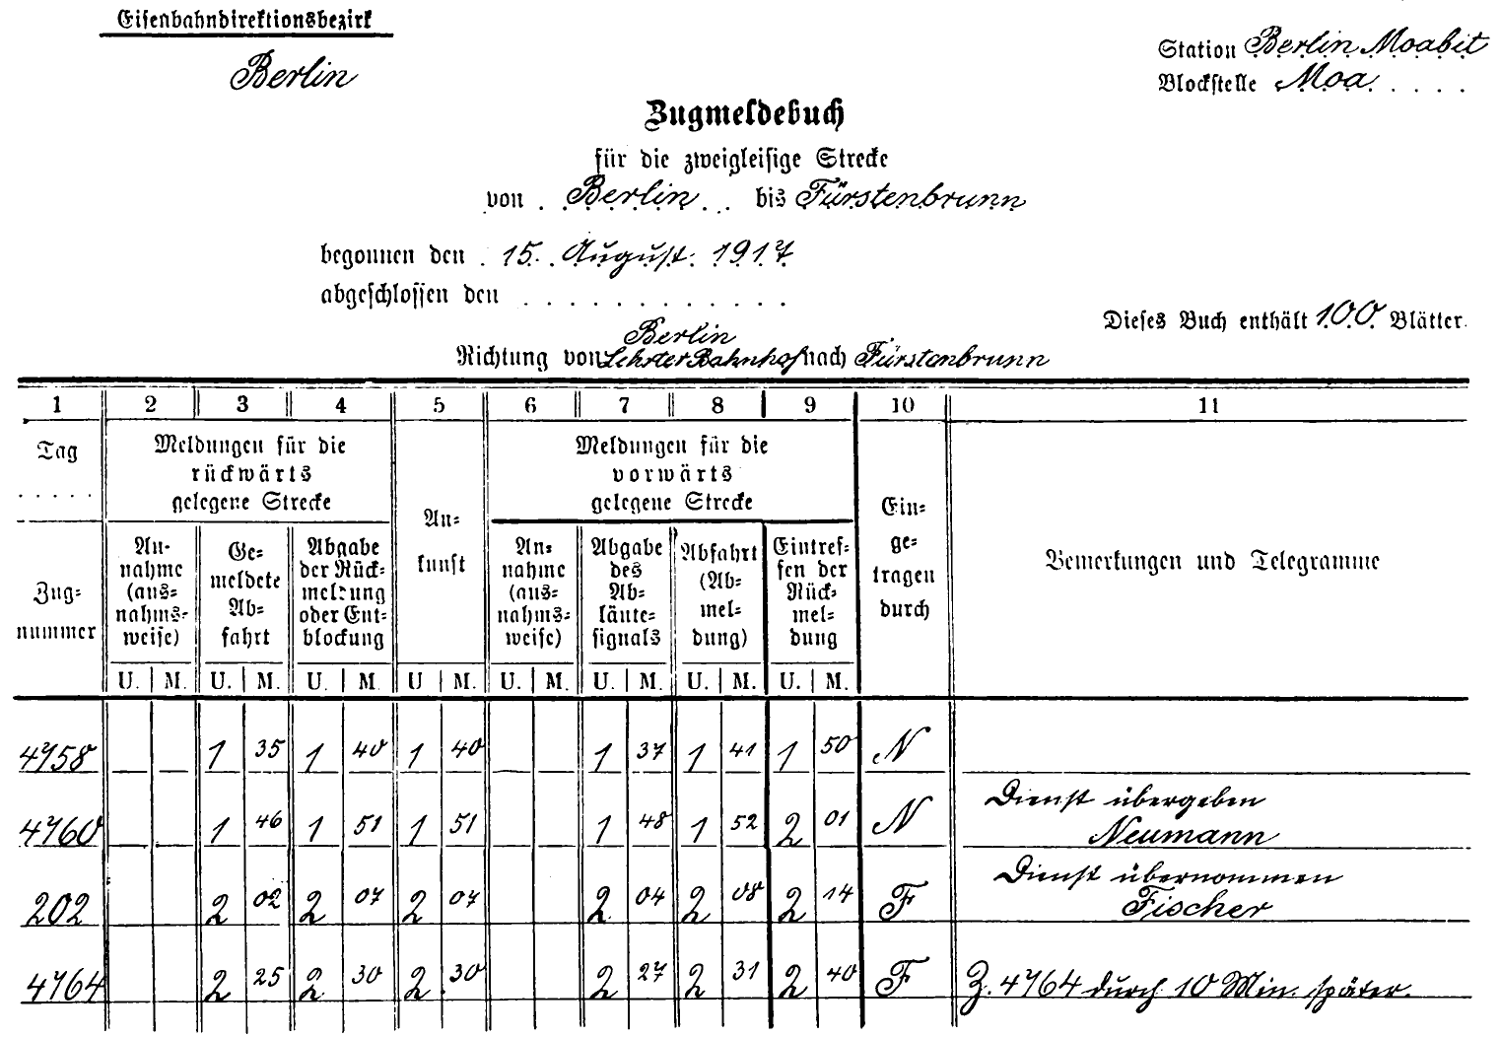 Eisenbahndirektionsbezirk
Berlin
Station Berlin Moabit
Blockstelle Moa . . . .
Zugmeldebuch
für die zweigleisige Strecke
von . Berlin . . bis Fürstenbrunn
begonnen den . 15. August 1917
abgeschlossen den . . . . . . . . . . . .
Dieses Buch enthält 100 Blätter.
Berlin
Richtung von Lehrter Bahnhof nach Fürstenbrunn
1 2 3 4 5 6 7 8 9 10 11
Tag
. . . . .
Zug-
nummer
Meldungen für die
rückwärts
gelegene Strecke
An-
nahme
(aus-
nahms-
weise)
Ge-
meldete
Ab-
fahrt
Abgabe
der Rück-
meldung
oder Ent-
blockung
An-
kunft
Meldungen für die
vorwärts
gelegene Strecke
An-
nahme
(aus-
nahms-
weise)
Abgabe
des
Ab-
läute-
signals
Abfahrt
(Ab-
mel-
dung)
Eintref-
fen der
Rück-
mel-
dung
Ein-
ge-
tragen
durch
Bemerkungen und Telegramme
U. M. U. M. U. M. U M. U. M. U. M. U. M. U. M.
4758 1 35 1 40 1 40 1 37 1 41 1 50 N
4760 1 46 1 51 1 51 1 48 1 52 2 01 N Dienst übergeben
Neumann
202 2 02 2 07 2 07 2 04 2 08 2 14 F Dienst übernommen
Fischer
4764 2 25 2 30 2 30 2 27 2 31 2 40 F Z. 4764 durch 10 Min. später.